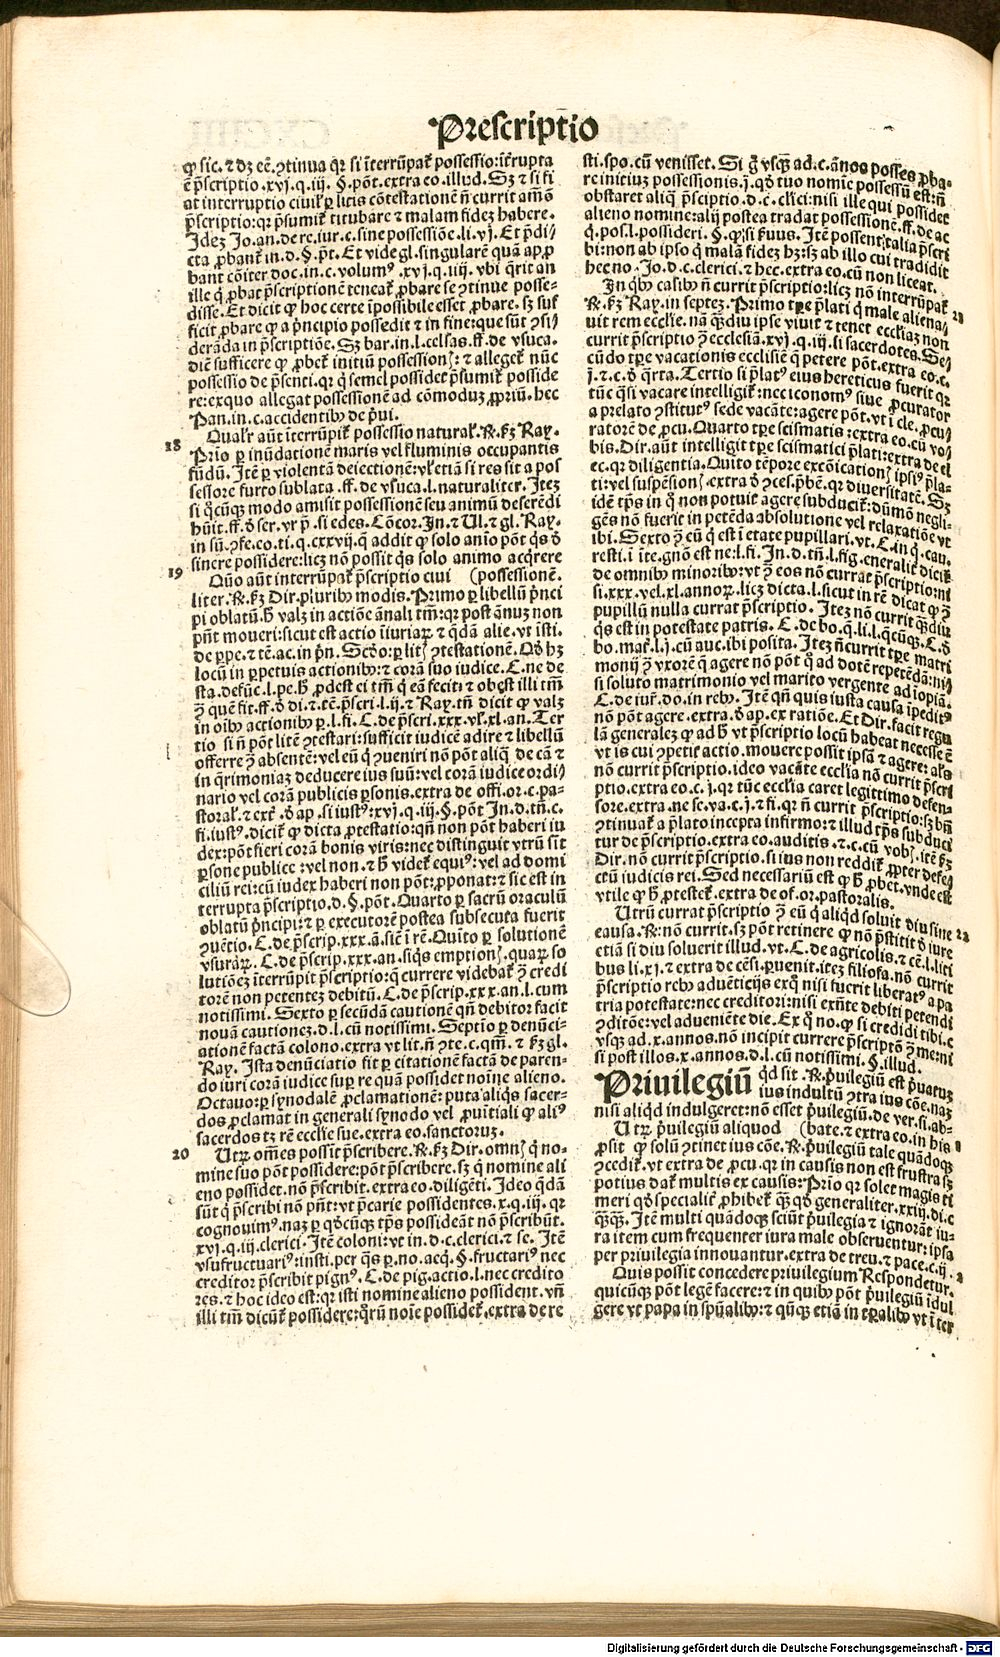 Prescriptio
ꝙ sic. ⁊ dꝫ eē. ꝯtinua qr si ĩterrũpat᷑ possessio: ĩt᷑rupta
ē p̃scriptio .xvj. q. iij. §. põt. extra eo. illud. Sꝫ ⁊ si fi
at interruptio ciuil᷑ ꝑ litis cõtestationē ñ currit am̃o
p̃scriptio: qꝛ p̃sumit᷑ titubare ⁊ malam fideꝫ habere.
Ideꝫ Jo. an. de re. iur. c. sine possessiõe. li. vj. Et p̃di⸗
cta ꝓbant᷑ in. d. §. põt. Et vide gl. singularē quã apꝓ
bant cõiter doc. in. c. volumꝰ .xvj. q. iiij. vbi q̃rit an
ille q̃ ꝓbat p̃scriptionē teneat᷑ ꝓbare se ꝯtinue posse⸗
disse. Et dicit ꝙ hoc certe ĩpossibile esset ꝓbare. sꝫ suf
ficit ꝓbare ꝙ a p̃ncipio possedit ⁊ in fine: que sũt ꝯsi⸗
derãda in p̃scriptiõe. Sꝫ bar. in. l. celsas. ff. de vsuca.
diē sufficere ꝙ ꝓbet᷑ initiũ possessionꝭ: ⁊ alleget᷑ nũc
possessio de p̃senti. qꝛ q̃ semel possidet p̃sumit᷑ posside
re: exquo allegat possessionē ad cõmoduꝫ ꝓpriũ. hec
Pan. in. c. accidentibꝰ de p̃ui.
18 Qualr̃ aũt ĩterrũpit᷑ possessio natural᷑. R̃. k̃ꝫ Ray.
Prĩo ꝑ inũdationē maris vel fluminis occupantis
fũdũ. Itē ꝑ violentã deiectionē: vl᷑ etiã si res sit a pos
sessore furto sublata .ff. de vsuca. l. naturaliter. Iteꝫ
si q̃cũqꝫ modo amisit possessionē seu animũ deserēdi
hũit. ff. d̃ ser. vr p̃. si edes. Cõcor. Jn. ⁊ Ul. ⁊ gl. Ray.
in sũ. ꝯfe. eo. ti. q. cxxvij. q̃ addit ꝙ solo anĩo põt q̃s d̃
sinere possidere: licꝫ nõ possit q̃s solo animo acq̃rere
19 Qũo aũt interrũpat᷑ p̃scriptio ciui (possessionē.
liter. R̃. k̃ꝫ Dir. pluribꝰ modis. Primo ꝑ libellũ p̃nci
pi oblatũ. h̃ valꝫ in actiõe ãnali tm̃: qꝛ post ãnuꝫ non
pñt moueri: sicut est actio ĩiuriaꝝ ⁊ q̃dã alie. vt ĩsti.
de ꝑpe. ⁊ tē. ac. in p̃n. Scd̃o: ꝑ litꝭ ꝯtestationē. Qd̃ hꝫ
locũ in ꝑpetuis actionibꝰ: ⁊ corã suo iudice. C. ne de
sta. defũc. l. pe. h̃ ꝓdest ei tm̃ q̃ eã fecit: ⁊ obest illi tm̃
ꝯ̃ quē fit. ff. d̃ di. ⁊ tē. p̃scri. l. ij. ⁊ Ray. tñ dicit ꝙ valꝫ
in oĩbꝰ actionibꝰ ꝑ l. fi. C. de p̃scri. xxx. vl᷑. xl. an. Ter
tio si ñ põt litē ꝯtestari: sufficit iudicē adire ⁊ libellũ
offerre ꝯ̃ absentē: vel eũ q̃ ꝯueniri nõ põt aliq̃ de cã ⁊
in q̃rimoniaꝫ deducere ius suũ: vel corã iudice ordi⸗
nario vel corã publicis ꝑsonis. extra de offi. or. c. pa⸗
storal᷑. ⁊ ext᷑. d̃ ap. si iustꝰ: xvj. q. iij. §. põt Jn. d. tñ. c.
si. iustꝰ. dicit᷑ ꝙ dicta ꝓtestatio: qñ non põt haberi iu
dex: põt fieri corã bonis viris: nec distinguit vtrũ sit
ꝑsone publice: vel non. ⁊ h̃ videt᷑ equiꝰ: vel ad domi
ciliũ rei: cũ iudex haberi non põt: ꝓponat: ⁊ sic est in
terrupta p̃scriptio. d. §. põt. Quarto ꝑ sacrũ oraculũ
oblatũ p̃ncipi: ⁊ ꝑ executorē postea subsecuta fuerit
ꝯuētio. C. de p̃scrip. xxx. ã. sic̃ ĩ rē. Quĩto ꝑ solutionē
vsuraꝝ. C. de p̃scrip. xxx. an. siq̃s emptionꝭ. quaꝝ so
lutiõeꝫ ĩterrũpit p̃scriptio: q̃ currere videbat᷑ ꝯ̃ credi
torē non petenteꝫ debitũ. C. de p̃scrip. xxx. an. l. cum
notissimi. Sexto ꝑ secũdã cautionē qñ debitor facit
nouã cautioneꝫ. d. l. cũ notissimi. Septĩo ꝑ denũci⸗
ationē factã colono. extra vt lit. ñ ꝯte. c. qm̃. ⁊ k̃ꝫ gl.
Ray. Ista denũciatio fit ꝑ citationē factã de paren⸗
do iuri corã iudice sup re quã possidet noĩne alieno.
Octauo: ꝑ synodalē ꝓclamationē: puta aliq̃s sacer⸗
dos ꝓclamat in generali synodo vel ꝓuĩtiali ꝙ aliꝰ
sacerdos tꝫ rē ecclie sue. extra eo. sanctoruꝫ.
20 Utꝝ om̃es possit p̃scribere. R̃. k̃ꝫ Dir. omnꝭ q̃ no⸗
mine suo põt possidere: põt p̃scribere. sꝫ q̃ nomine ali
eno possidet. nõ p̃scribit. extra eo. diligēti. Ideo q̃dã
sũt q̃ p̃scribi nõ pñt: vt p̃carie possidentes. x. q. iij. qꝛ
cognouimꝰ. naꝫ ꝑ qd̃cũqꝫ tp̃s possideãt nõ p̃scribũt.
xvj. q. iij. clerici. Itē coloni: vt in. d. c. clerici. ⁊ se. Itē
vsufructuariꝰ: insti. per q̃s ꝑ. no. acq̃. §. fructariꝰ nec
creditor p̃scribit pignꝰ. C. de pig. actio. l. nec credito
res. ⁊ hoc ideo est: qꝛ isti nomine alieno possident. vñ
illi tm̃ dicũt᷑ possidere: q̃rũ noĩe possidet᷑. extra de re
sti. spo. cũ venisset. Si g̃ vsqꝫ ad. c. ãnos posses ꝓba⸗
re initiuꝫ possessionis. j. qd̃ tuo nomĩe possessũ est: ñ
obstaret aliq̃ p̃sciptio. d. c̃. cl̃ici: nisi ille qui possidet
alieno nomine: alij postea tradat possessionē. ff. de ac
q̃. pos. l. possideri. §. ꝙ si s̃uus. Itē possent: talia p̃scri
bi: non ab ipso q̃ malã fideꝫ hꝫ: sꝫ ab illo cui tradidit
hec no. Jo. d. c. clerici. ⁊ hec. extra eo. cũ non liceat.
21 Jn q̃bꝰ casibꝰ ñ currit p̃scriptio: licꝫ nõ interrũpat᷑
R̃. k̃ꝫ Ray. in septeꝫ. Primo tꝑe p̃lati q̃ male aliena⸗
uit rem ecclie. nã q̃ꝫdiu ipse viuit ⁊ tenet eccliaꝫ non
currit p̃scriptio ꝯ̃ ecclesiã. xvj. q. iij. si sacerdotes. Se⸗
cũdo tꝑe vacationis ecclisiē q̃ petere põt. extra eo. c.
j. ⁊. c. d̃ q̃rta. Tertio si p̃latꝰ eius hereticus fuerit qꝛ
tũc q̃si vacare intelligit᷑: nec iconomꝰ siue ꝓcurator
a prelato ꝯstitutꝰ sede vacãte: agere põt. vt ĩ cle. ꝓcu⸗
ratorē de ꝓcu. Quarto tꝑe scismatis: extra eo. cũ vo⸗
bis. Dir. aũt intelligit tꝑe scismatici p̃lati: extra de el
ec. qꝛ diligentia. Quĩto tēpore excõicationꝭ ipsiꝰ p̃la⸗
ti: vel suspēsionꝭ. extra d̃ ꝯces. p̃bē. qꝛ diuersitatē. Sꝫ
idē tp̃s in q̃ non potuit agere subducit᷑: dũmõ negli⸗
gēs nõ fuerit in petēda absolutione vel relaxatiõe vt
ibi. Sexto ꝯ̃ cũ q̃ est ĩ etate pupillari. vt. C. in q̃. cau.
resti. ĩ ĩte. gnõ est ne: l. fi. Jn. d. tñ. l. fi. generalit᷑ dicit᷑
de omnibꝰ minoribꝰ: vt ꝯ̃ eos nõ currat p̃scriptio: ni
si. xxx. vel. xl. annoꝝ. licꝫ dicta. l. sicut in rē dicat ꝙ ꝯ̃
pupillũ nulla currat p̃scriptio. Iteꝫ nõ currit q̃ꝫdiu
q̃s est in potestate patris. C. de bo. q̃. li. l. q̃cũqꝫ. C. d̃
bo. mat᷑. l. j. cũ auc. ibi posita. Iteꝫ ñ currit tꝑe matri
monij ꝯ̃ vxorē q̃ agere nõ põt q̃ ad dotē repetēdã: ni⸗
si soluto matrimonio vel marito vergente ad ĩopiã.
C. de iur̃. do. in rebꝰ. Itē qñ quis iusta causa ĩpeditꝰ
nõ põt agere. extra. d̃ ap. ex ratiõe. Et Dir. facit regu
lã generaleꝫ ꝙ ad h̃ vt p̃scriptio locũ habeat necesse ē
vt is cui ꝯpetit actio. mouere possit ipsã ⁊ agere: al̃s
nõ currit p̃scriptio. ideo vacãte ecclia nõ currit p̃scri
ptio. extra eo. c. j. qꝛ tũc ecclia caret legittimo defen⸗
sore. extra. ne se. va. c. j. ⁊ fi. qꝛ ñ currit p̃scriptio: sꝫ bñ
ꝯtinuat᷑ a p̃lato incepta infirmo: ⁊ illud tp̃s subduci
tur de p̃scriptio. extra eo. auditis. ⁊. c. cũ vobꝭ. itē k̃ꝫ
Dir. nõ currit p̃scriptio. si ius non reddit᷑ ꝓpter defe⸗
ctũ iudicis rei. Sed necessariũ est ꝙ h̃ ꝓbet. vnde est
vtile ꝙ h̃ ꝓtestet᷑. extra de of. or. pastoralis.
22 Utrũ currat p̃scriptio ꝯ̃ eũ q̃ aliqd̃ soluit diu sine
causa. R̃. nõ currit. sꝫ põt retinere ꝙ nõ p̃stitit d̃ iure
etiã si diu soluerit illud. vt. C. de agricolis. ⁊ cē. l. liti
bus li. xj. ⁊ extra de cēsi. ꝑuenit. iteꝫ filiofa. nõ currit
p̃scriptio rebꝰ aduēticijs exq̃ nisi fuerit liberatꝰ a pa
tria potestate: nec creditori: nisi exñte debiti petendi
ꝯditõe: vel adueniēte die. Ex q̃ no. ꝙ si credidi tibi. c
vsqꝫ ad. x. annos. nõ incipit currere p̃scriptõ ꝯ̃ me: ni
si post illos. x. annos. d. l. cũ notissimi. §. illud.
Priuilegiũ qd̃ sit. R̃. p̃uilegiũ est p̃uatuꝫ
ius indultũ ꝯtra ius cõe. naꝫ
nisi aliqd̃ indulgeret: nõ esset p̃uilegiũ. de ver. si. ab⸗
1 Utꝝ p̃uilegiũ aliquod (bate. ⁊ extra eo. in his
ꝓsit ꝙ solũ ꝯtinet ius cõe. R̃. p̃uilegiũ tale quãdoqꝫ
ꝯcedit᷑. vt extra de ꝓcu. qꝛ in causis non est frustra sꝫ
potius dat᷑ multis ex causis: Prĩo qꝛ solet magis ti
meri qd̃ specialit᷑ ꝓhibet᷑ q̃ꝫ qd̃ generaliter. xxiij. di. c
q̃ꝫqꝫ. Itē multi quãdoqꝫ sciũt p̃uilegia ⁊ ignorãt iu⸗
ra item cum frequenter iura male obseruentur: ipsa
per priuilegia innouantur. extra de treu. ⁊ pace. c. ij.
2 Quis possit concedere priuilegium Respondetur.
quicũqꝫ põt legē facere: ⁊ in quibꝰ põt p̃uilegiũ ĩdul
gere vt papa in spũalibꝰ: ⁊ q̃ñqꝫ etiã in tꝑalibꝰ vt ĩ ter
Digitalisierung gefördert durch die Deutsche Forschungsgemeinschaft - DFG